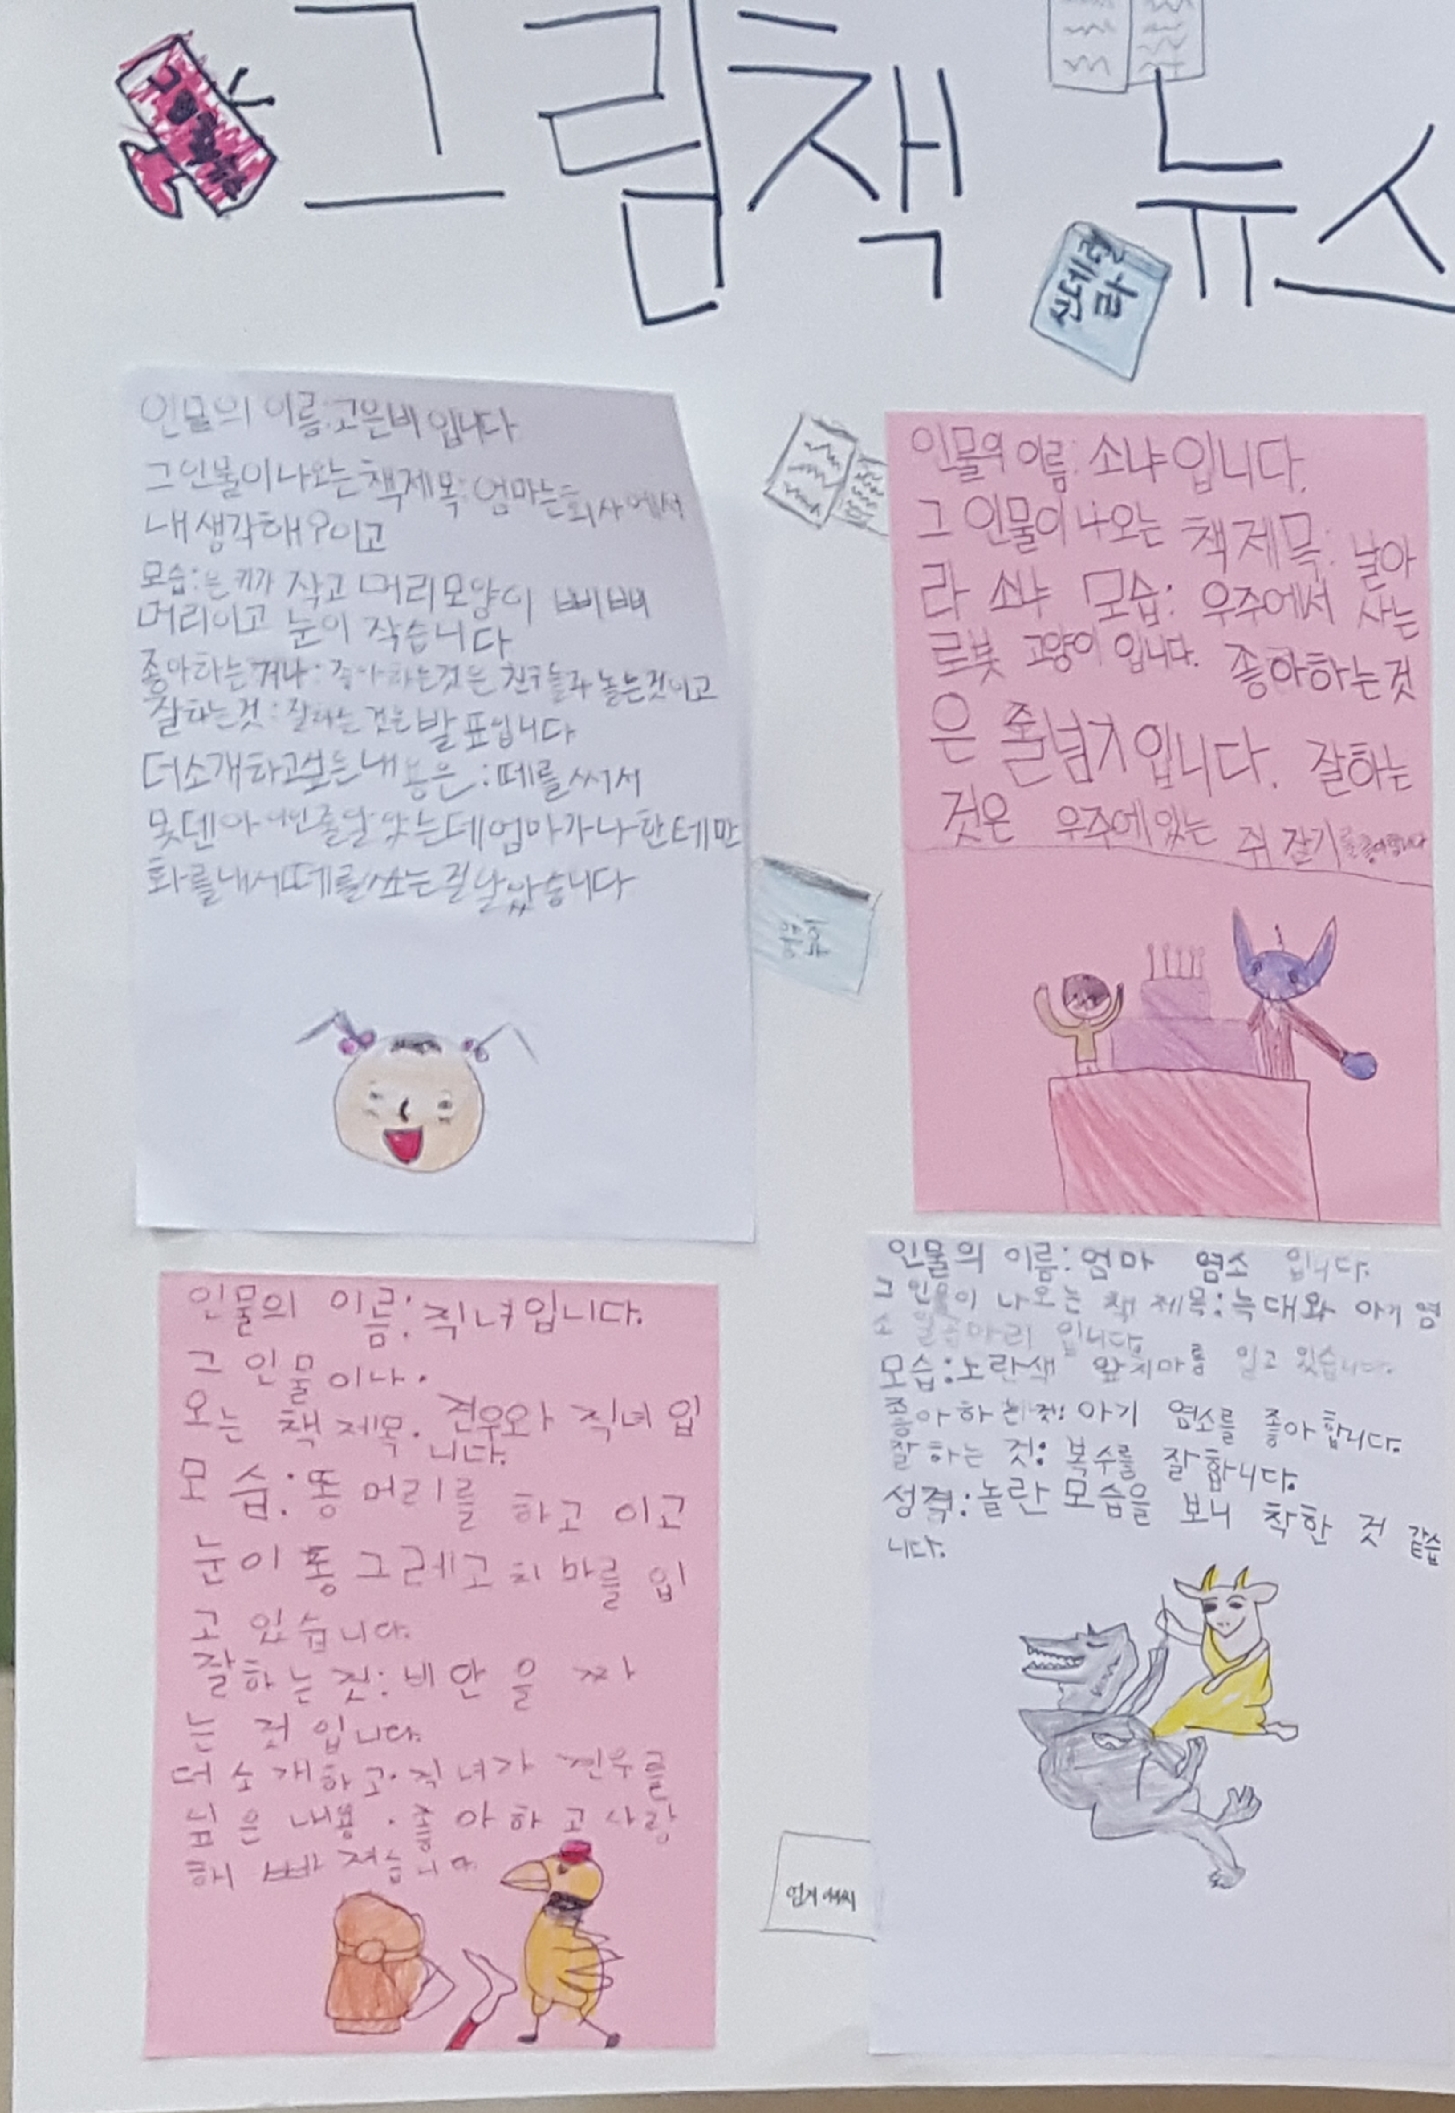 그림책 뉴스
인물의 이름:고은비입니다
그인물이나오는책제목:엄마는회사에서
내생각해?이고
모습:은키가 작고 머리모양이 삐삐
머리이고 눈이 작습니다
좋아하는거나:좋아하는것은 친구들과 노는것이고
잘하는것:잘하는 것은발표입니다
더소개하고싶은내용은:떼를써서
혼날
화를내서떼를쓰는
인물의 이름:소냐입니다.
그 인물이 나오는 책제목:날아
라 소냐 모습:우주에서 사는
로봇 고양이 입니다. 좋아하는것
은 줄넘기입니다. 잘하는
것은 우주에있는 쥐 잡기
인물의 이름:직녀입니다.
그 인물이나.
오는 책제목.견우와 직녀 입
니다.
모습:똥머리를 하고 이고
눈이 똥그레고치마를 입
고 있습니다.
잘하는것:비단을 짜
는 것입니다.
더소개하고.직녀가 견우를
싶은 내용.좋아하고사랑
해 빠져습니다
인물의 이름:엄마 염소 입니다.
그 인물이 나오는 책 제목:늑대와 아기 염
소 일곱마리 입니다.
모습:노란색 앞치마를 입고 있습니다.
좋아하는것:아기 염소를 좋아합니다.
잘하는 것:복수를 잘합니다.
성격:놀란 모습을 보니 착한 것 같습
니다.